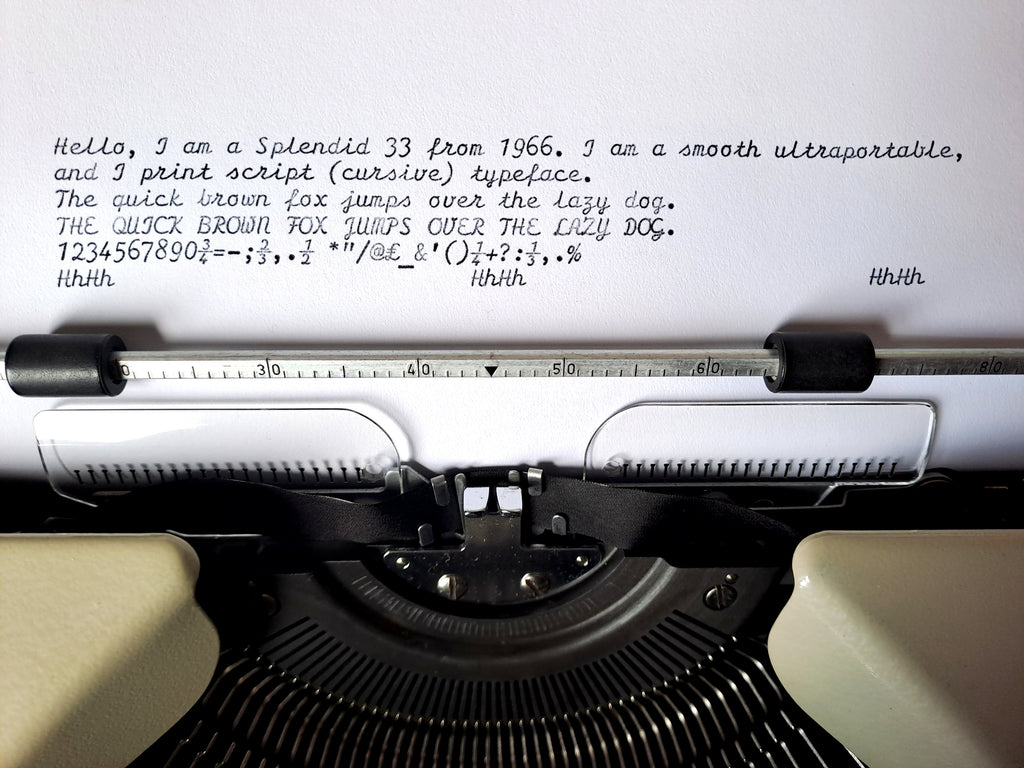 Hello, I am a Splendid 33 from 1966. I am a smooth ultraportable,
and I print script (cursive) typeface.
The quick brown fox jumps over the lazy dog.
THE QUICK BROWN FOX JUMPS OVER THE LAZY DOG.
1234567890¾=-;⅔,.½ *"/@£_&'()¼+?:⅓,.%
HhHh HhHh HhHh
0 30 40 50 60 80